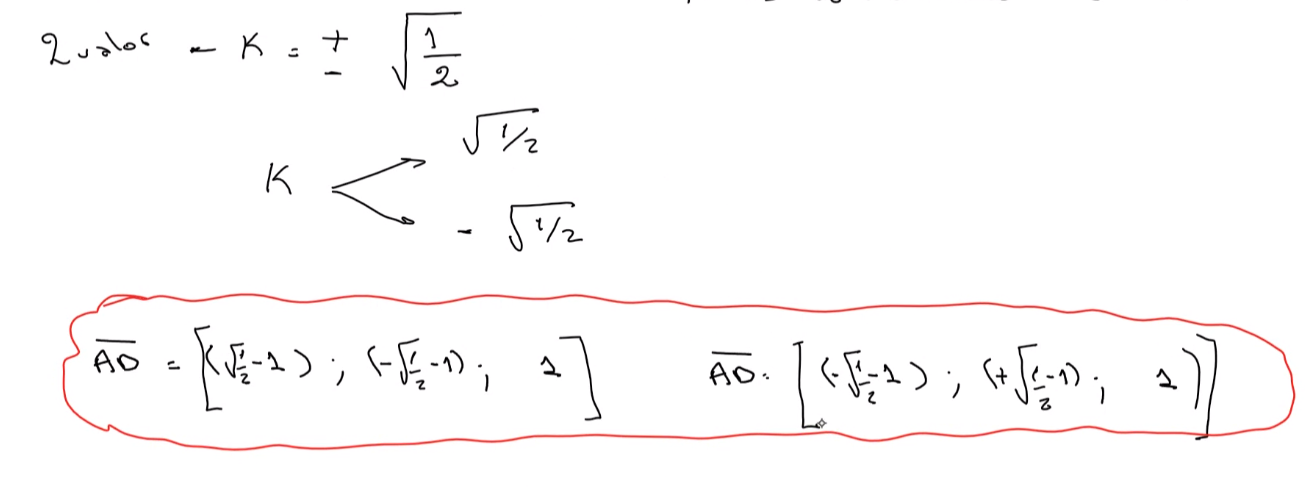 2 valor - K = ± √(1/2)
√1/2
K
- √1/2
AD = [(√1/2 - 1) ; (-√1/2 - 1) ; 1] AD = [(-√1/2 - 1) ; (+√1/2 - 1) ; 1)]